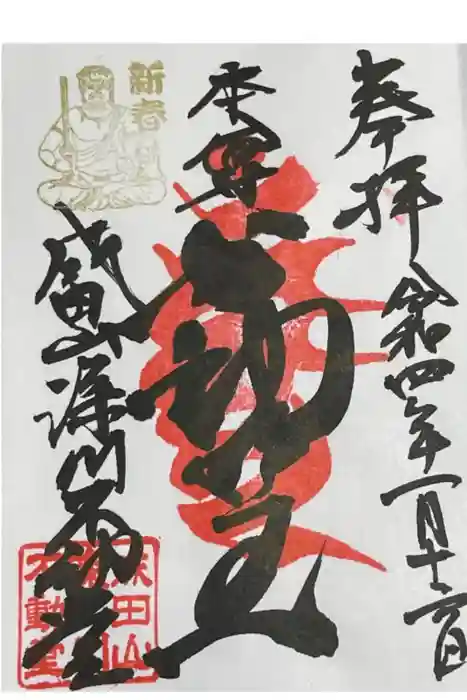 奉拝 令和四年一月十六日
本尊 不動明王
成田山 深川不動堂
新春
成田山
深川
不動堂